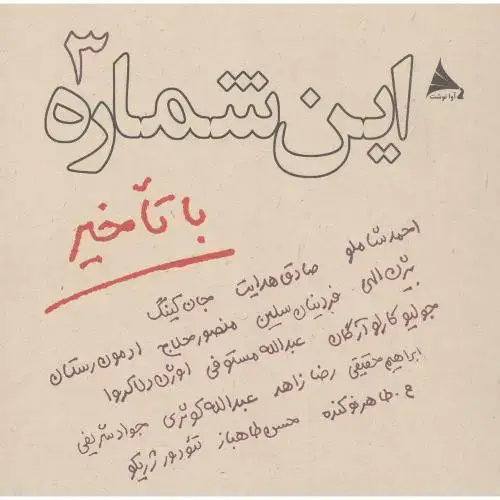 این شماره ۳
آوا نوشت
با تأخیر
احمد شاملو صادق هدایت جان کینگ
بیژن الهی فردینان سلین منصور حلاج ادمون رستان
جولیو کارلو آرگان عبدالله مستوفی اوژن دلاکروا
ابراهیم حقیقی رضا زاهد عبدالله کوثری جواد شریفی
ع. طاهر نوکنده محسن طاهباز تئودور ژریکو